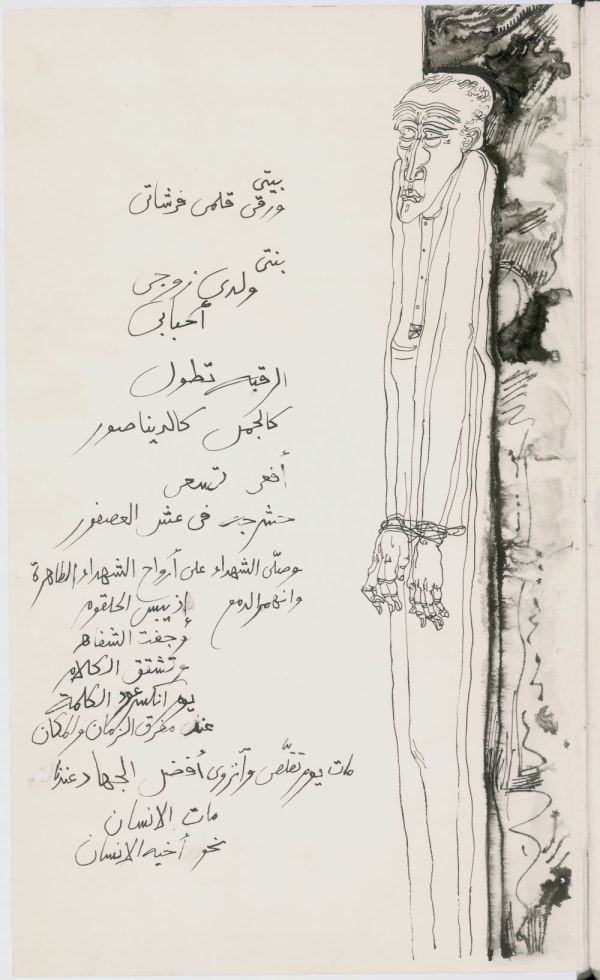 بيتي
ورقي قلمي فرشاتي
بنتي
ولدي زوجي
أحبابي
الرقبه تطول
كالجمل كالديناصور
أفعى تسعى
حشرجة في عش العصفور
وصلى الشهداء على أرواح الشهداء الطاهرة
وانهمر الدمع إذ يبس الحلقوم
وجفت الشفاه
وتشتق الكلام
يوم انكسر عود الكلمة
عند مفرق الزمان والمكان
مات يوم تقلّص وآنزوى أفضل الجهاد عندنا
مات الانسان
نحو أخيه الانسان